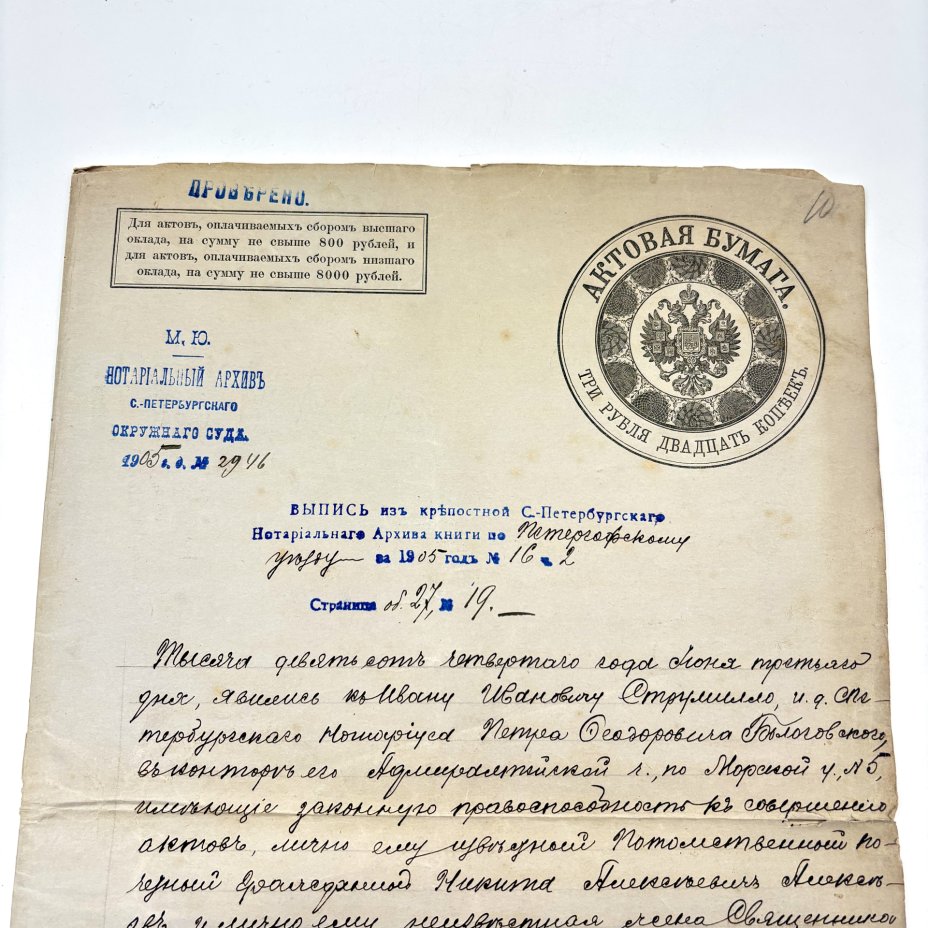 ПРОВѢРЕНО.
10
Для актовъ, оплачиваемыхъ сборомъ высшаго
оклада, на сумму не свыше 800 рублей, и
для актовъ, оплачиваемыхъ сборомъ низшаго
оклада, на сумму не свыше 8000 рублей.
АКТОВАЯ БУМАГА.
ТРИ РУБЛЯ ДВАДЦАТЬ КОПѢЕКЪ.
М. Ю.
НОТАРІАЛЬНЫЙ АРХИВЪ
С.-ПЕТЕРБУРГСКАГО
ОКРУЖНАГО СУДА.
1905 г. д. № 2946
ВЫПИСЬ изъ крѣпостной С.-Петербургскаго
Нотаріальнаго Архива книги по Петергофскому
уѣзду за 1905 годъ № 16 ч. 2
Страница об. 27, № 19.
Тысяча девятьсотъ четвертаго года Іюня третьяго
дня, явились къ Ивану Ивановичу Струмилло, и. д. СПе-
тербургскаго Нотаріуса Петра Ѳеодоровича Бѣлоговскаго,
въ конторѣ его Адмиралтейской ч., по Морской у., № 5,
имѣющіе законную правоспособность къ совершенію
актовъ, лично ему извѣстный Потомственный по-
четный Гражданинъ Никита Алексѣевичъ Алексѣ-
евъ и лично ему неизвѣстная жена Священника